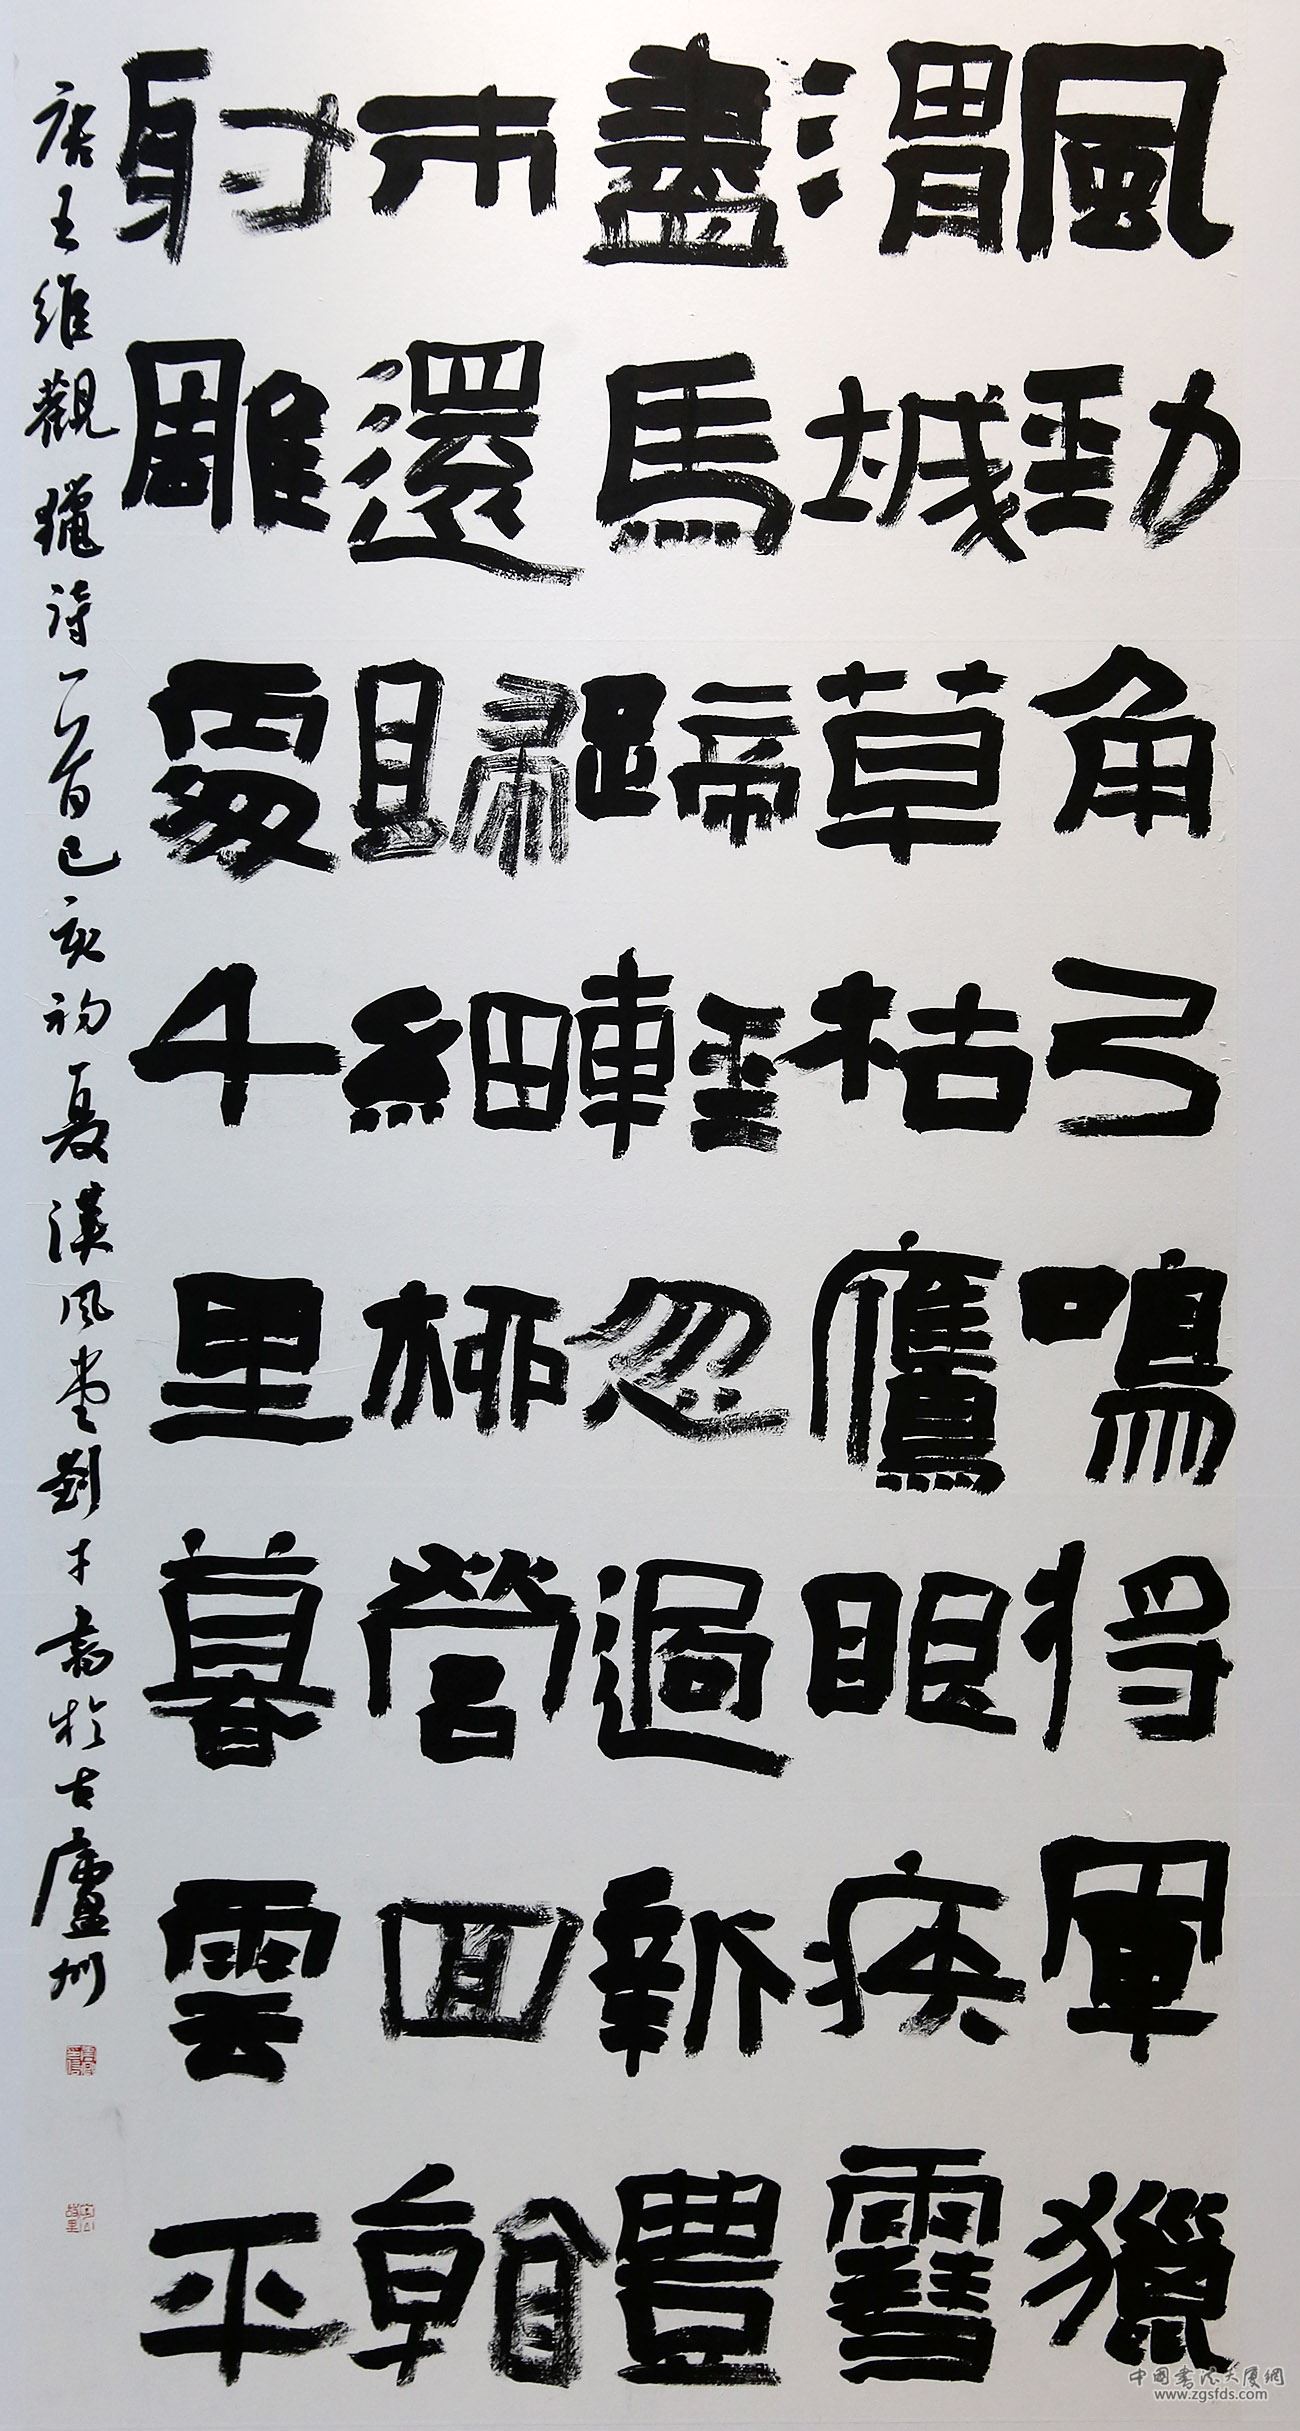 風勁角弓鳴將軍獵
渭城草枯鷹眼疾雪
盡馬蹄輕忽過新豐
市還歸細柳營回看
射雕處千里暮雲平
唐王維觀獵詩一首己亥初夏漢風堂劉才書於古廬州
中國書法大廈網
www.zgsfds.com